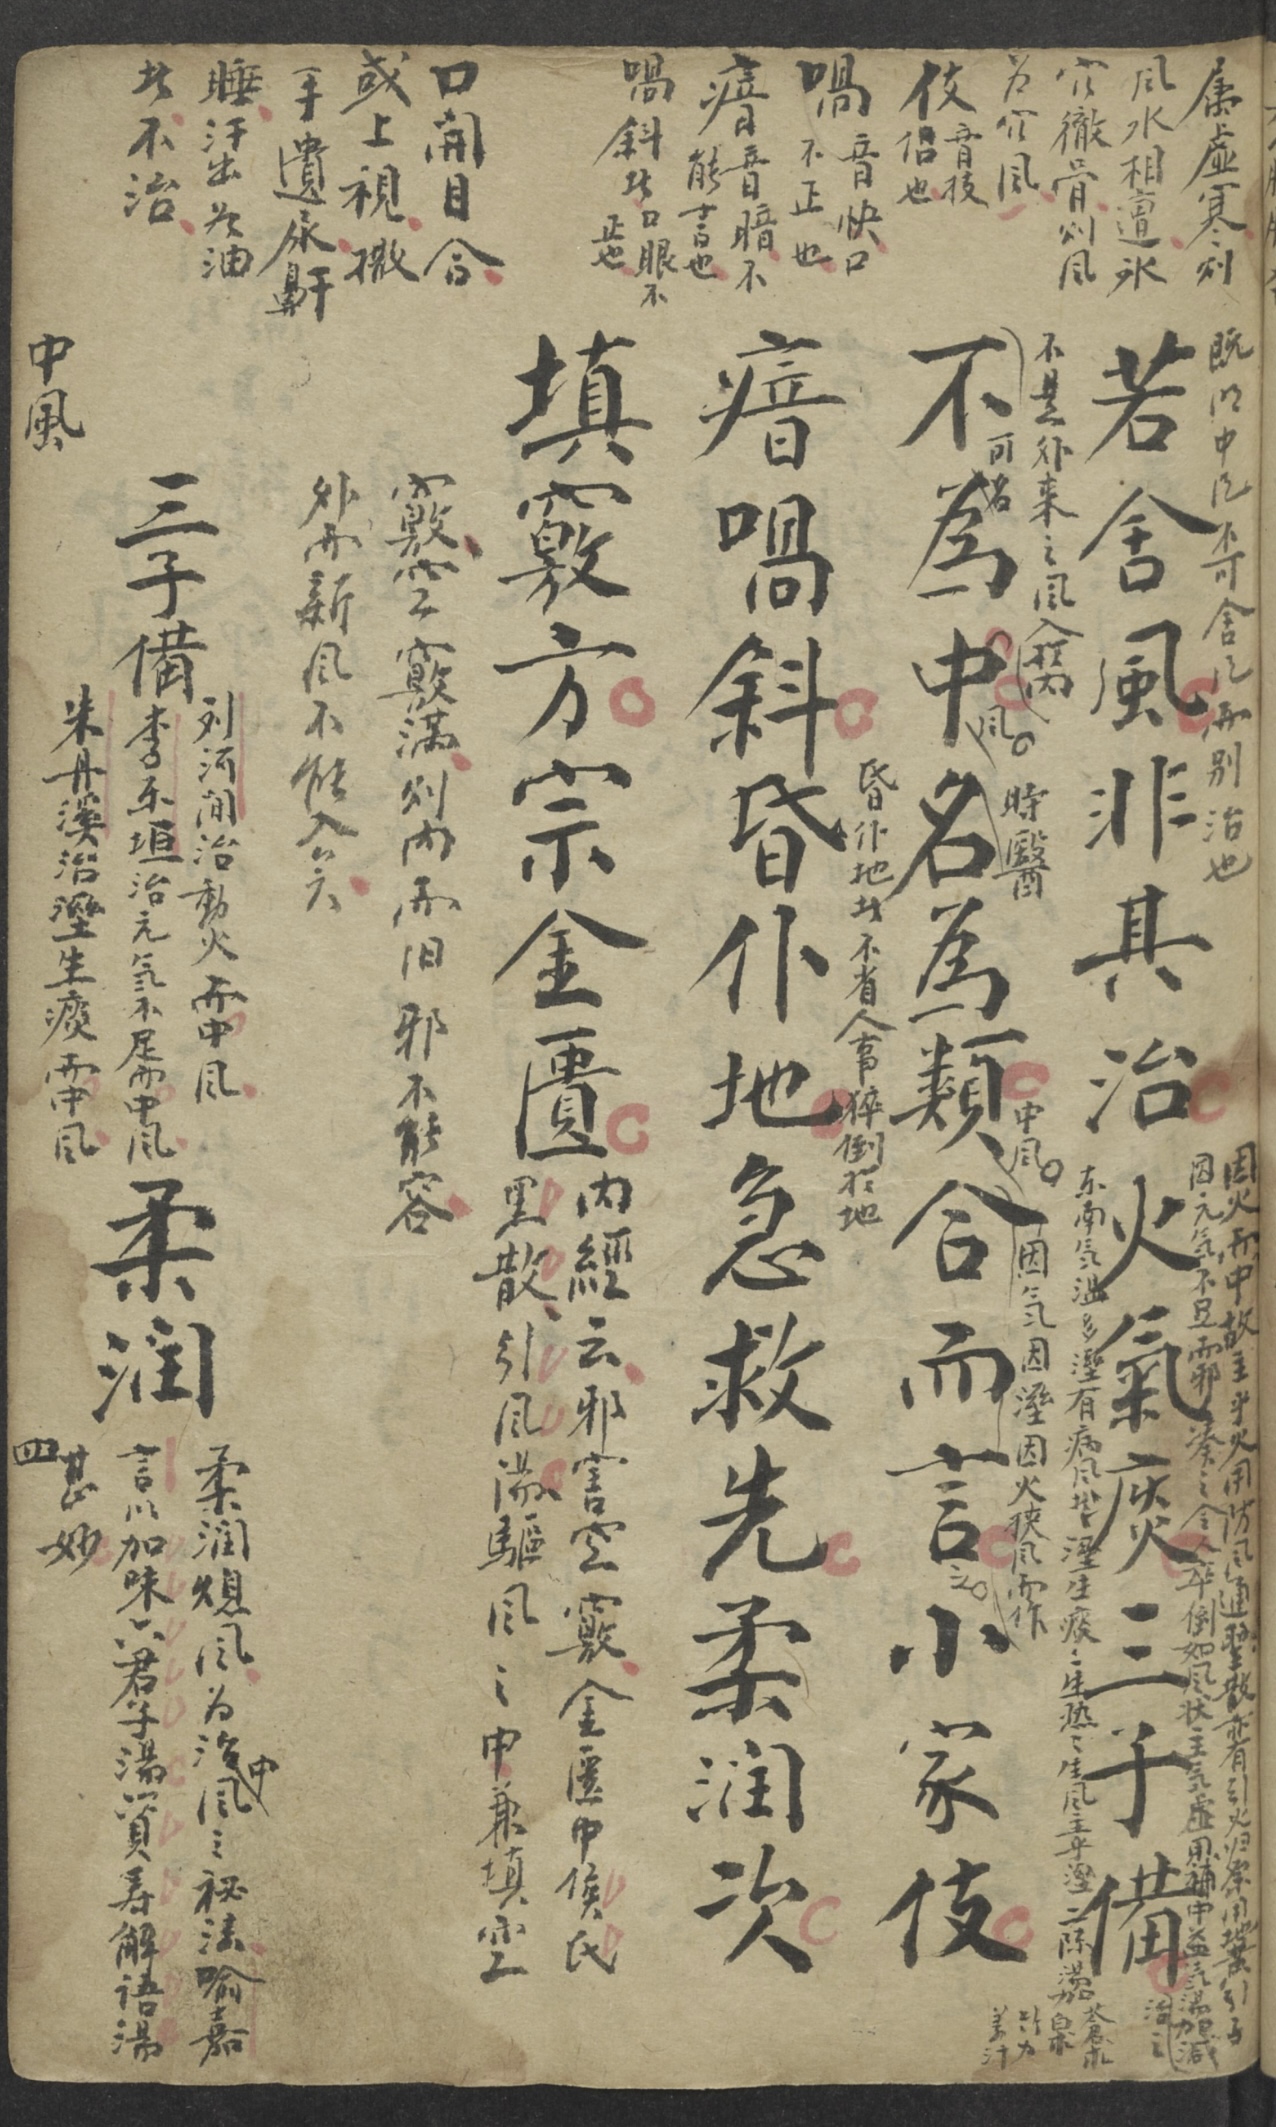 屬虛寒則
風水相遭氷
穴徹骨則風
為穴風
伎音技
侣也
喎音快口
不正也
瘖音暗不
能言也
喎斜者口眼不
正也
口開目合
或上視撒
手遺尿鼾
睡汗出為油
者不治
既以中风不可舍风而別治也
若舍風非其治火氣痰三子備
因火而中故主乎火用防风通聖散
因元氣不足而邪湊之令人卒倒如风狀主氣虛用補中益氣湯加減
治之
不是外来之风入竅
东南氣溫多溼有病风者溼生痰痰生热热生风主乎溼二陈湯加
蒼朮
不為中名為類合而言小家伎
可名
风
時醫
中风
因氣因溼因火挾风而作
之
昏仆地者不省人事猝倒於地
瘖喎斜昏仆地急救先柔润次
填竅方宗金匱
内經云邪害空竅金匱中侯氏
黑散引风湯驅风之中兼填空
竅空竅滿則内而旧邪不能容
外而新风不能入矣
三子備
刘河间治動火而中风
李东垣治元氣不足而中风
朱丹溪治溼生痰而中风
柔润
柔润熄风为治中风之秘法喻嘉
言以加味六君子湯資寿解語湯
甚妙
中風
四